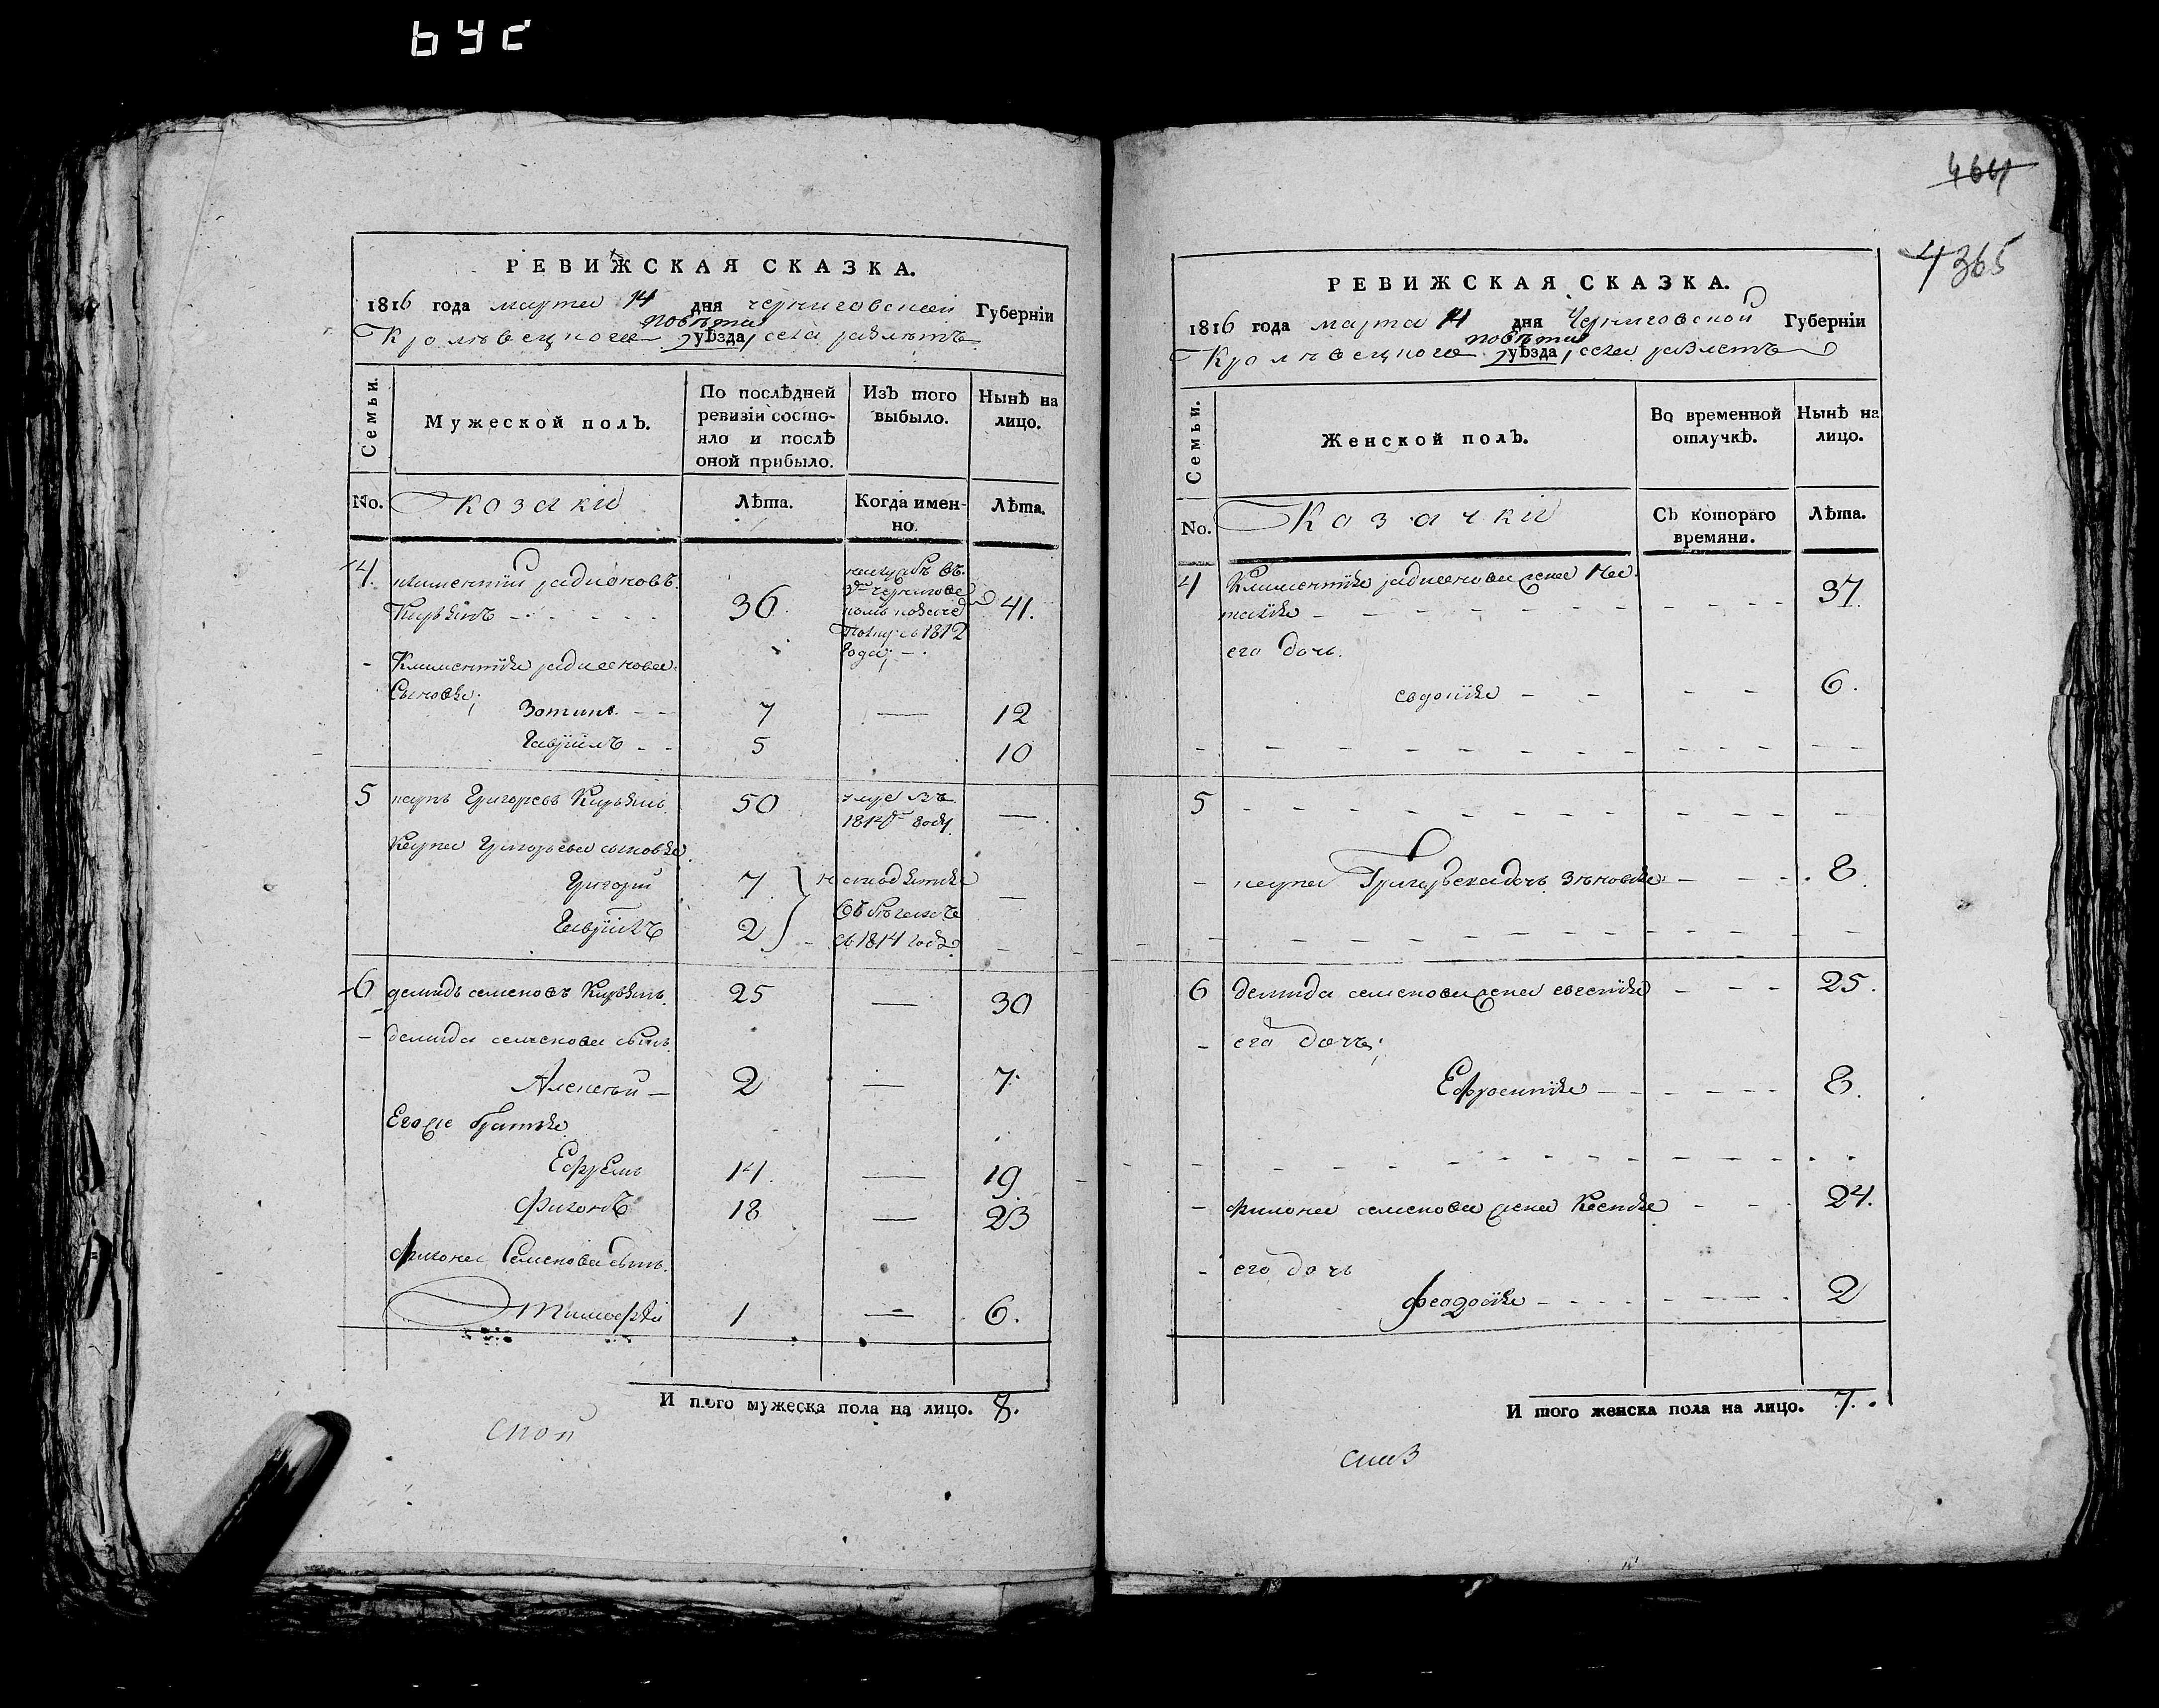 РЕВИЖСКАЯ СКАЗКА.
1816 года марта 14 дня черниговской Губерніи
повѣта
Кролѣвецкого уѣзда, села
Семьи.
Мужеской полъ.
По послѣдней ревизіи состо-
яло и послѣ
оной прибыло.
Изъ того
выбыло.
Нынѣ на
лицо.
No.
козаки
Лѣта.
Когда имен-
но.
Лѣта.
4.
климентій радионовъ
36.
1812
года;
41.
Климентія радионова
Сыновья;
Зотикъ 7 — 12
Гавріилъ 5 10
5 карпъ Григоревъ 50
1814 году —
Карпа Григорьева сыновья
Григорій 7
Гавріилъ 2
въ 1814 годѣ
6 демидъ семеновъ 25 — 30
демида семенова сынъ
Алексѣй — 2 — 7.
Егоже братья
Ефремъ 14. — 19
Филонъ 18 — 23
филона Семенова сынъ
Тимофѣй 1 — 6.
И того мужеска пола на лицо. 8.
464
4365
РЕВИЖСКАЯ СКАЗКА.
1816 года марта 14 дня Черниговской Губерніи
повѣта
Кролѣвецкого уѣзда, села
Семьи.
Женской полъ.
Во временной
отлучкѣ.
Нынѣ на
лицо.
No.
Козачки
Съ котораго
времяни.
Лѣта.
4 Климентія радионова жена На-
талія 37.
его дочь.
евдокія 6.
5
карпа Григорьева дочь Зѣновія 8.
6 демида семенова жена евгенія 25.
его дочь;
Ефросинія 8.
филона семенова жена Ксенія 24.
его дочь
феодосія 2
И того женска пола на лицо. 7.